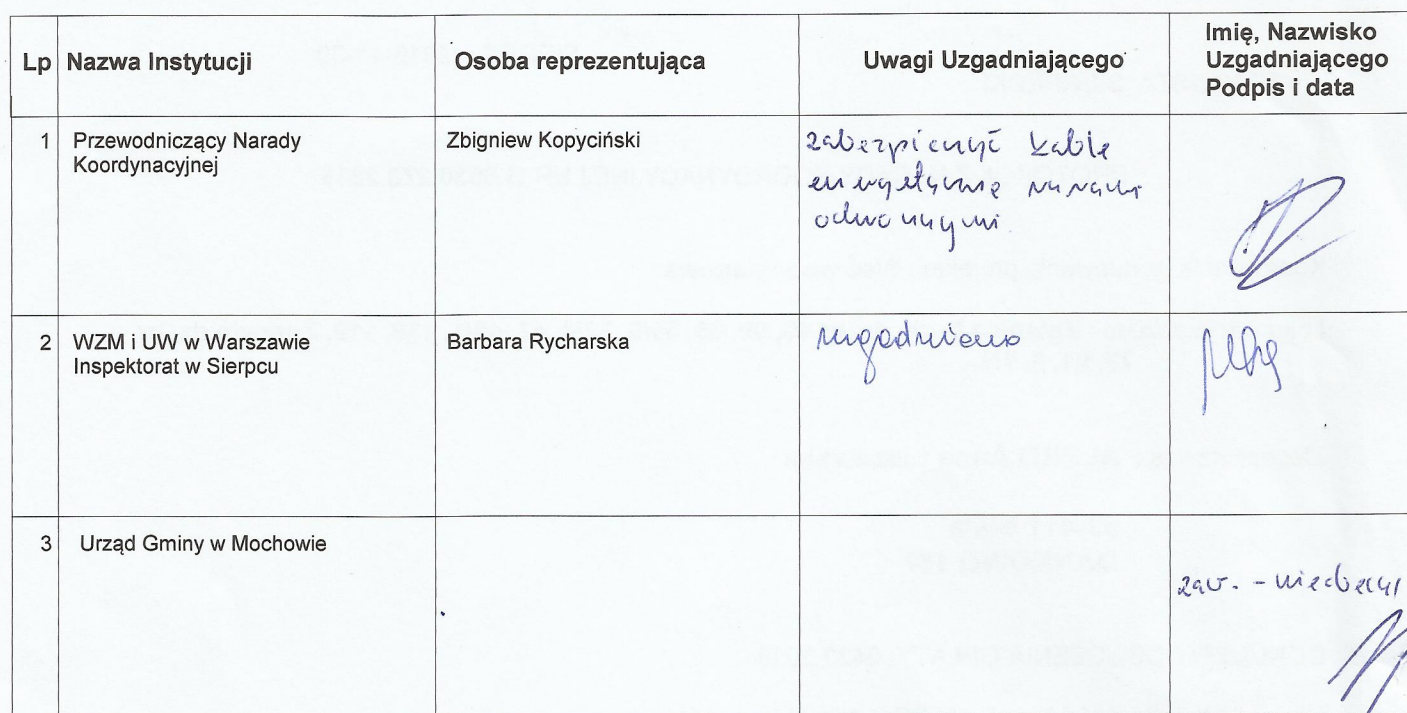 Lp Nazwa Instytucji Osoba reprezentująca Uwagi Uzgadniającego Imię, Nazwisko
Uzgadniającego
Podpis i data
1 Przewodniczący Narady
Koordynacyjnej
Zbigniew Kopyciński
zabezpieczyć kable
energetyczne rurami
ochronnymi
2 WZM i UW w Warszawie
Inspektorat w Sierpcu
Barbara Rycharska
uzgodniono
3 Urząd Gminy w Mochowie
zaw. - nieobecny